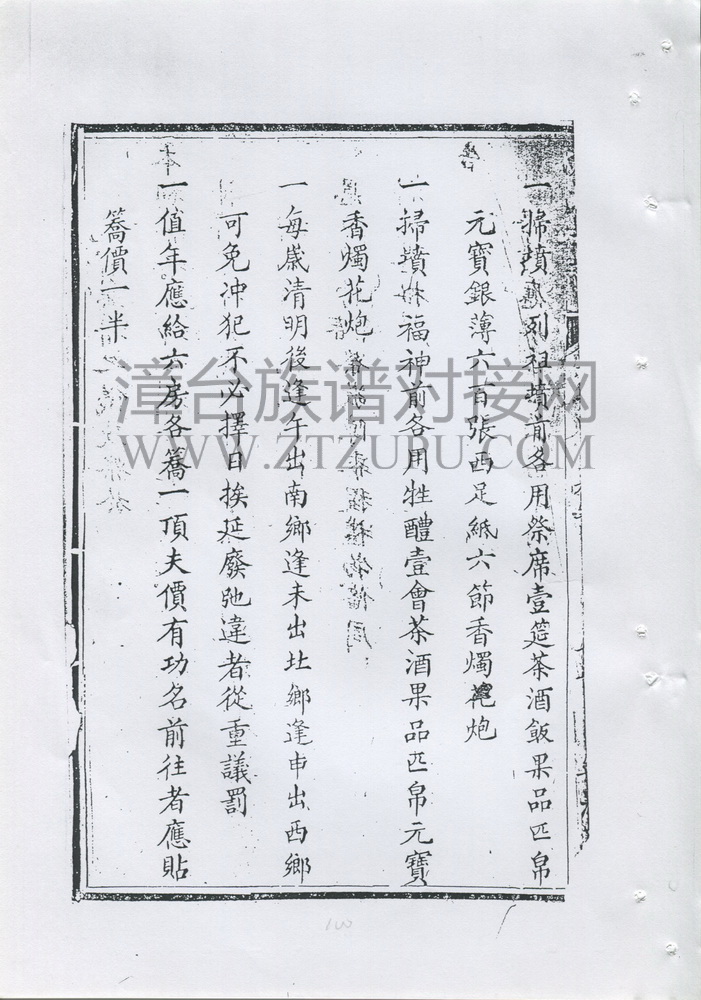 一掃墳 列祖墳前各用祭席壹筵茶酒飯果品匹帛
元寶銀薄六百張西足紙六節香燭花炮
一掃墳 福神前各用牲醴壹會茶酒果品匹帛元寶
香燭花炮
一每歲清明後逢午出南鄉逢未出北鄉逢申出西鄉
可免沖犯不必擇日挨延廢弛違者從重議罰
一值年應給六房各轎一頂夫價有功名前往者應貼
轎價一半
漳台族谱对接网
WWW.ZTZUPU.COM
100